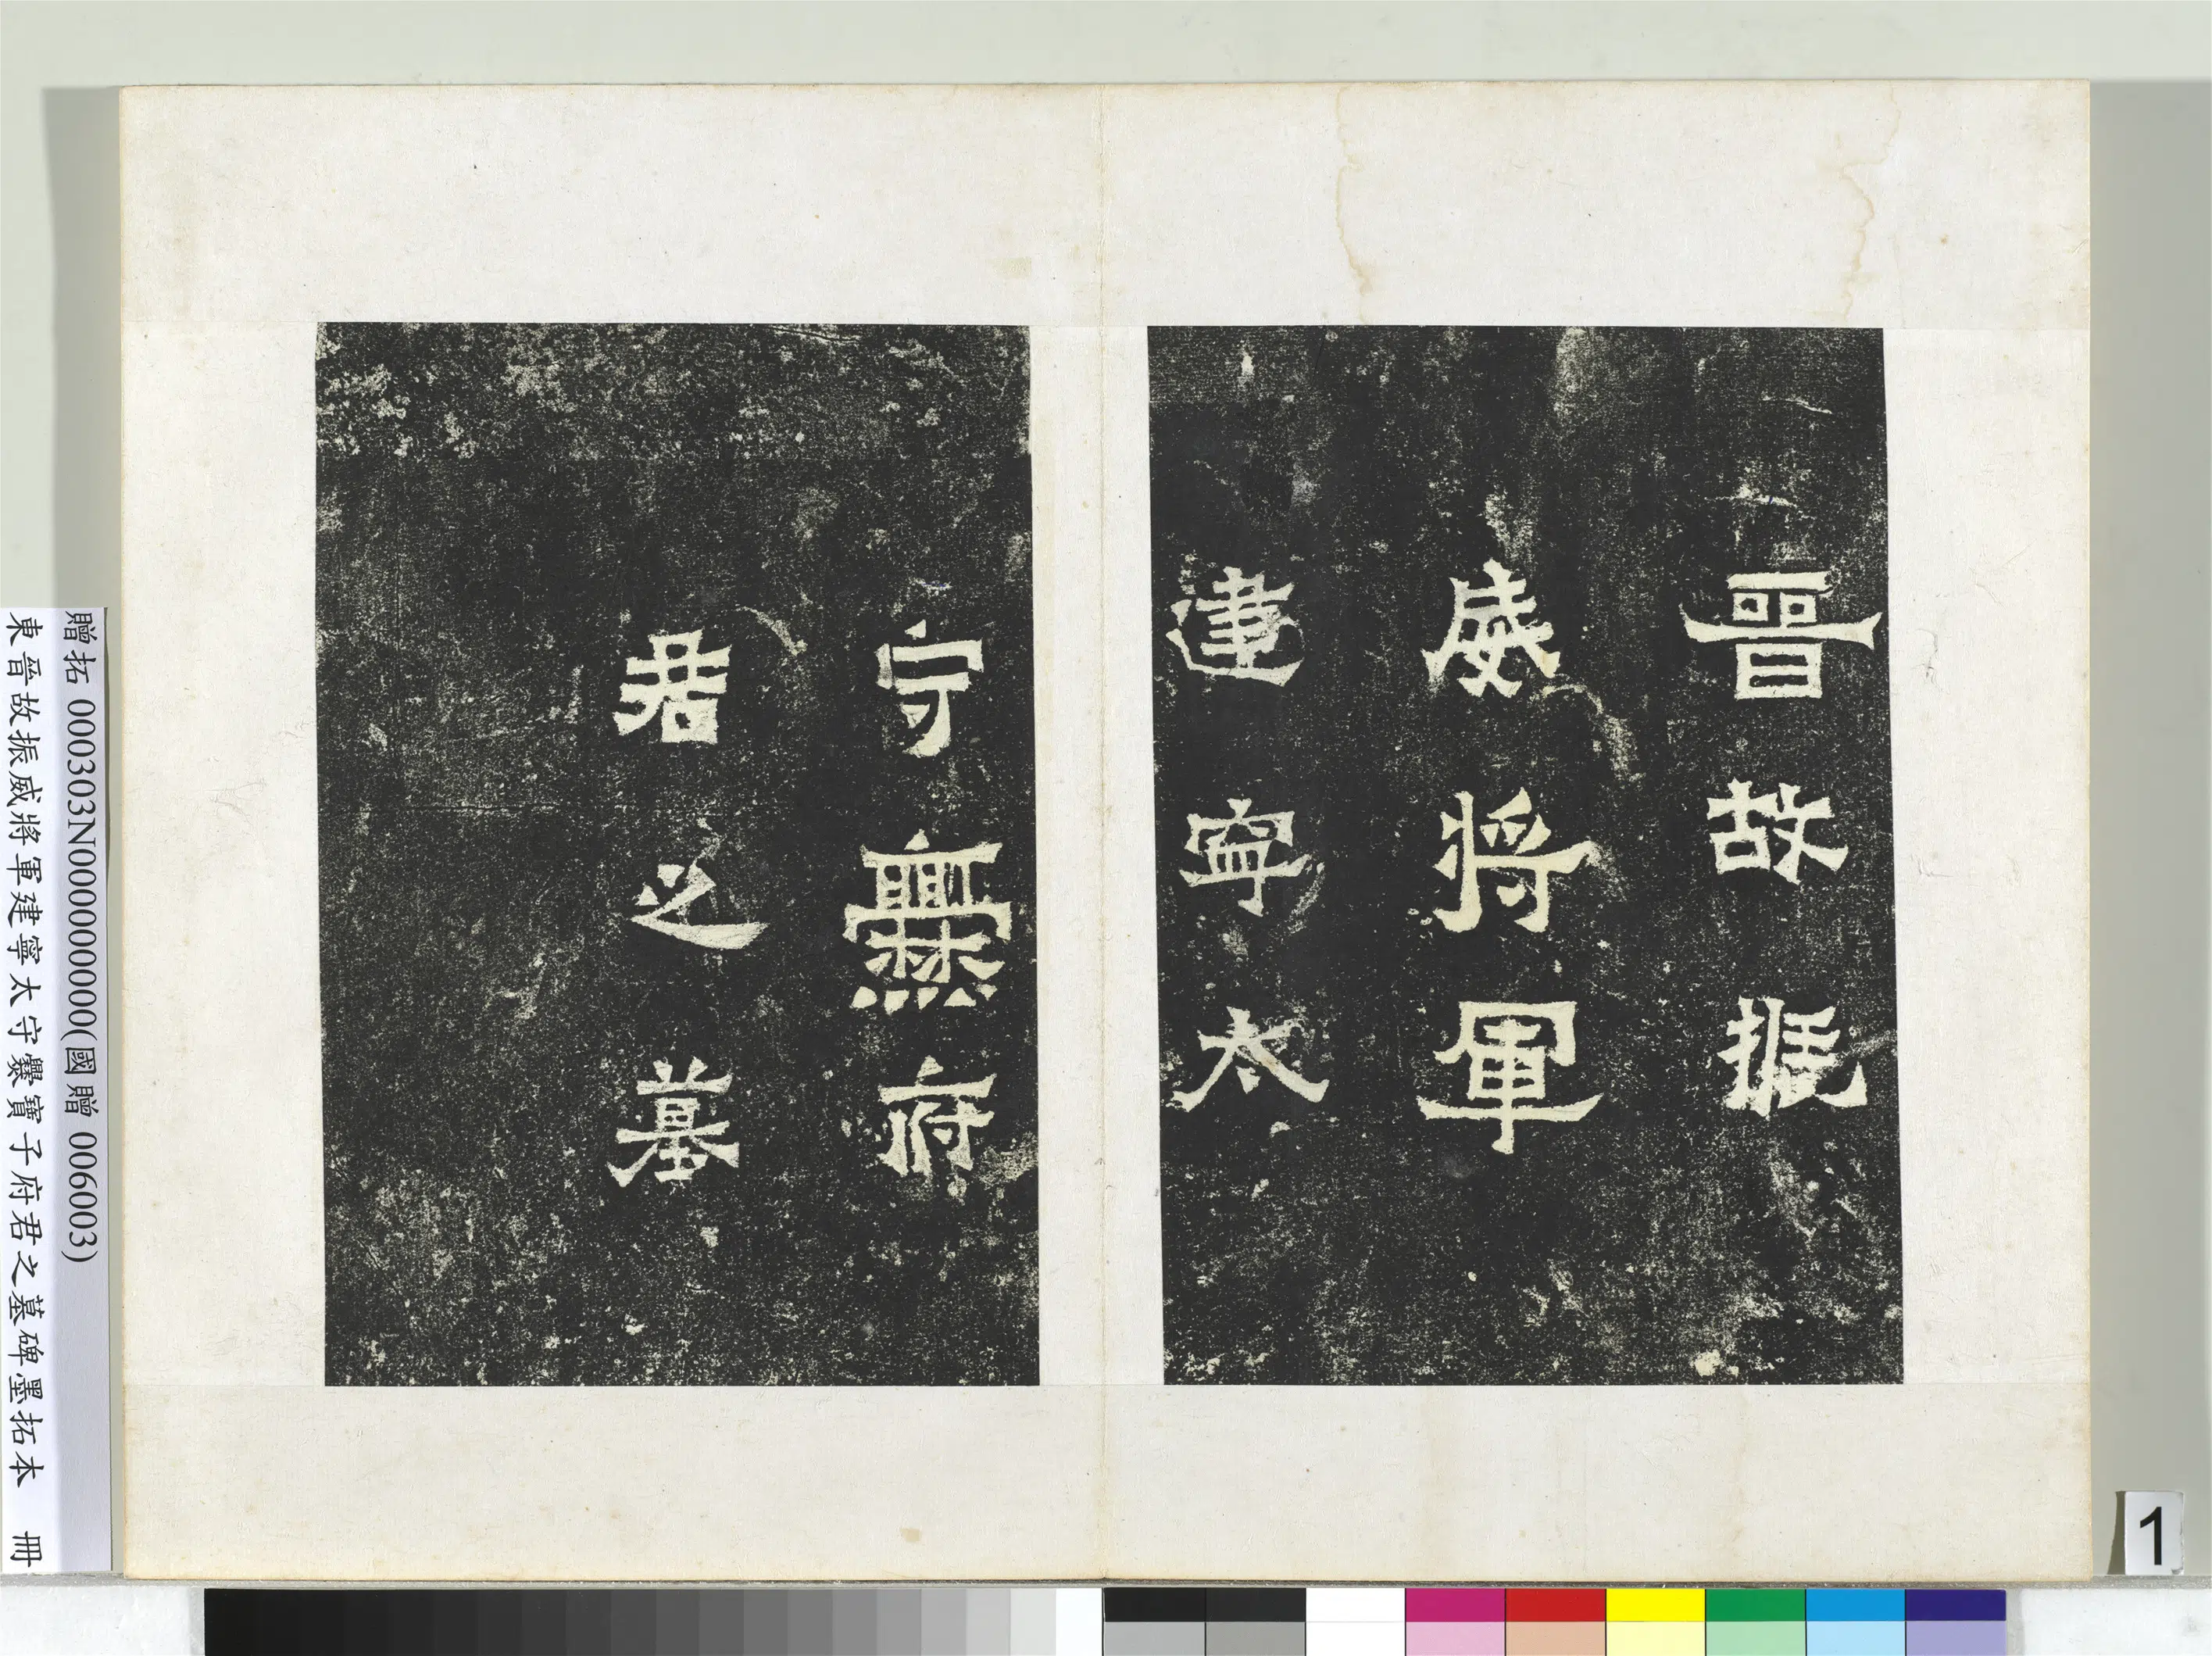 晉故振
威將軍
建寧太
守爨府
君之墓
贈拓 000303N000000000(國贈 006003)
東晉故振威將軍建寧太守爨寶子府君之墓碑墨拓本 冊
1